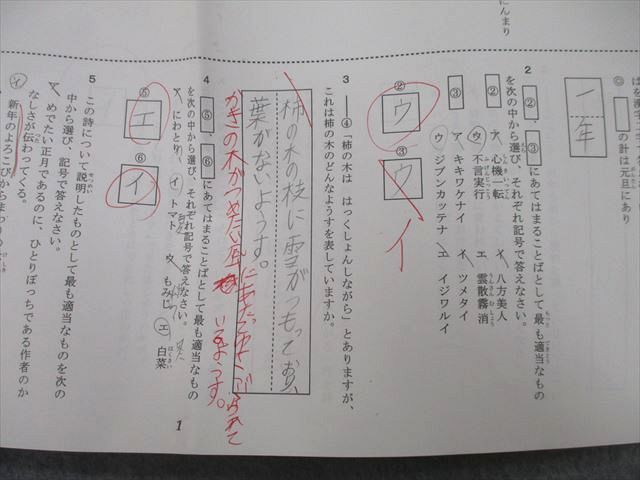 にんまり
◎
の計は元旦にあり
一年
2 ②、③にあてはまることばとして最も適当なもの
を次の中から選び、それぞれ記号で答えなさい。
② ア、心機一転 イ 八方美人
ウ 不言実行 エ 雲散霧消
③ ア、キキワケナイ イ ツメタイ
ウ ジブンカッテナ エ イジワルイ
② ウ ③ ウ
イ
3 ――④「柿の木は はっくしょんしながら」とありますが、
これは柿の木のどんなようすを表していますか。
柿の木の枝に雪がつもってお、
葉がないようす。
かきの木がつめたい風
にあたって
いるようす。
4 ⑤、⑥にあてはまることばとして最も適当なもの
を次の中から選び、それぞれ記号で答えなさい。
ア にわとり、 イ トマト ウ もみじ エ 白菜
⑤ エ ⑥ イ
5 この詩について説明したものとして最も適当なものを次の
中から選び、記号で答えなさい。
ア めでたい正月であるのに、ひとりぼっちである作者のか
なしさが伝わってくる。
イ 新年のよろこびから
1